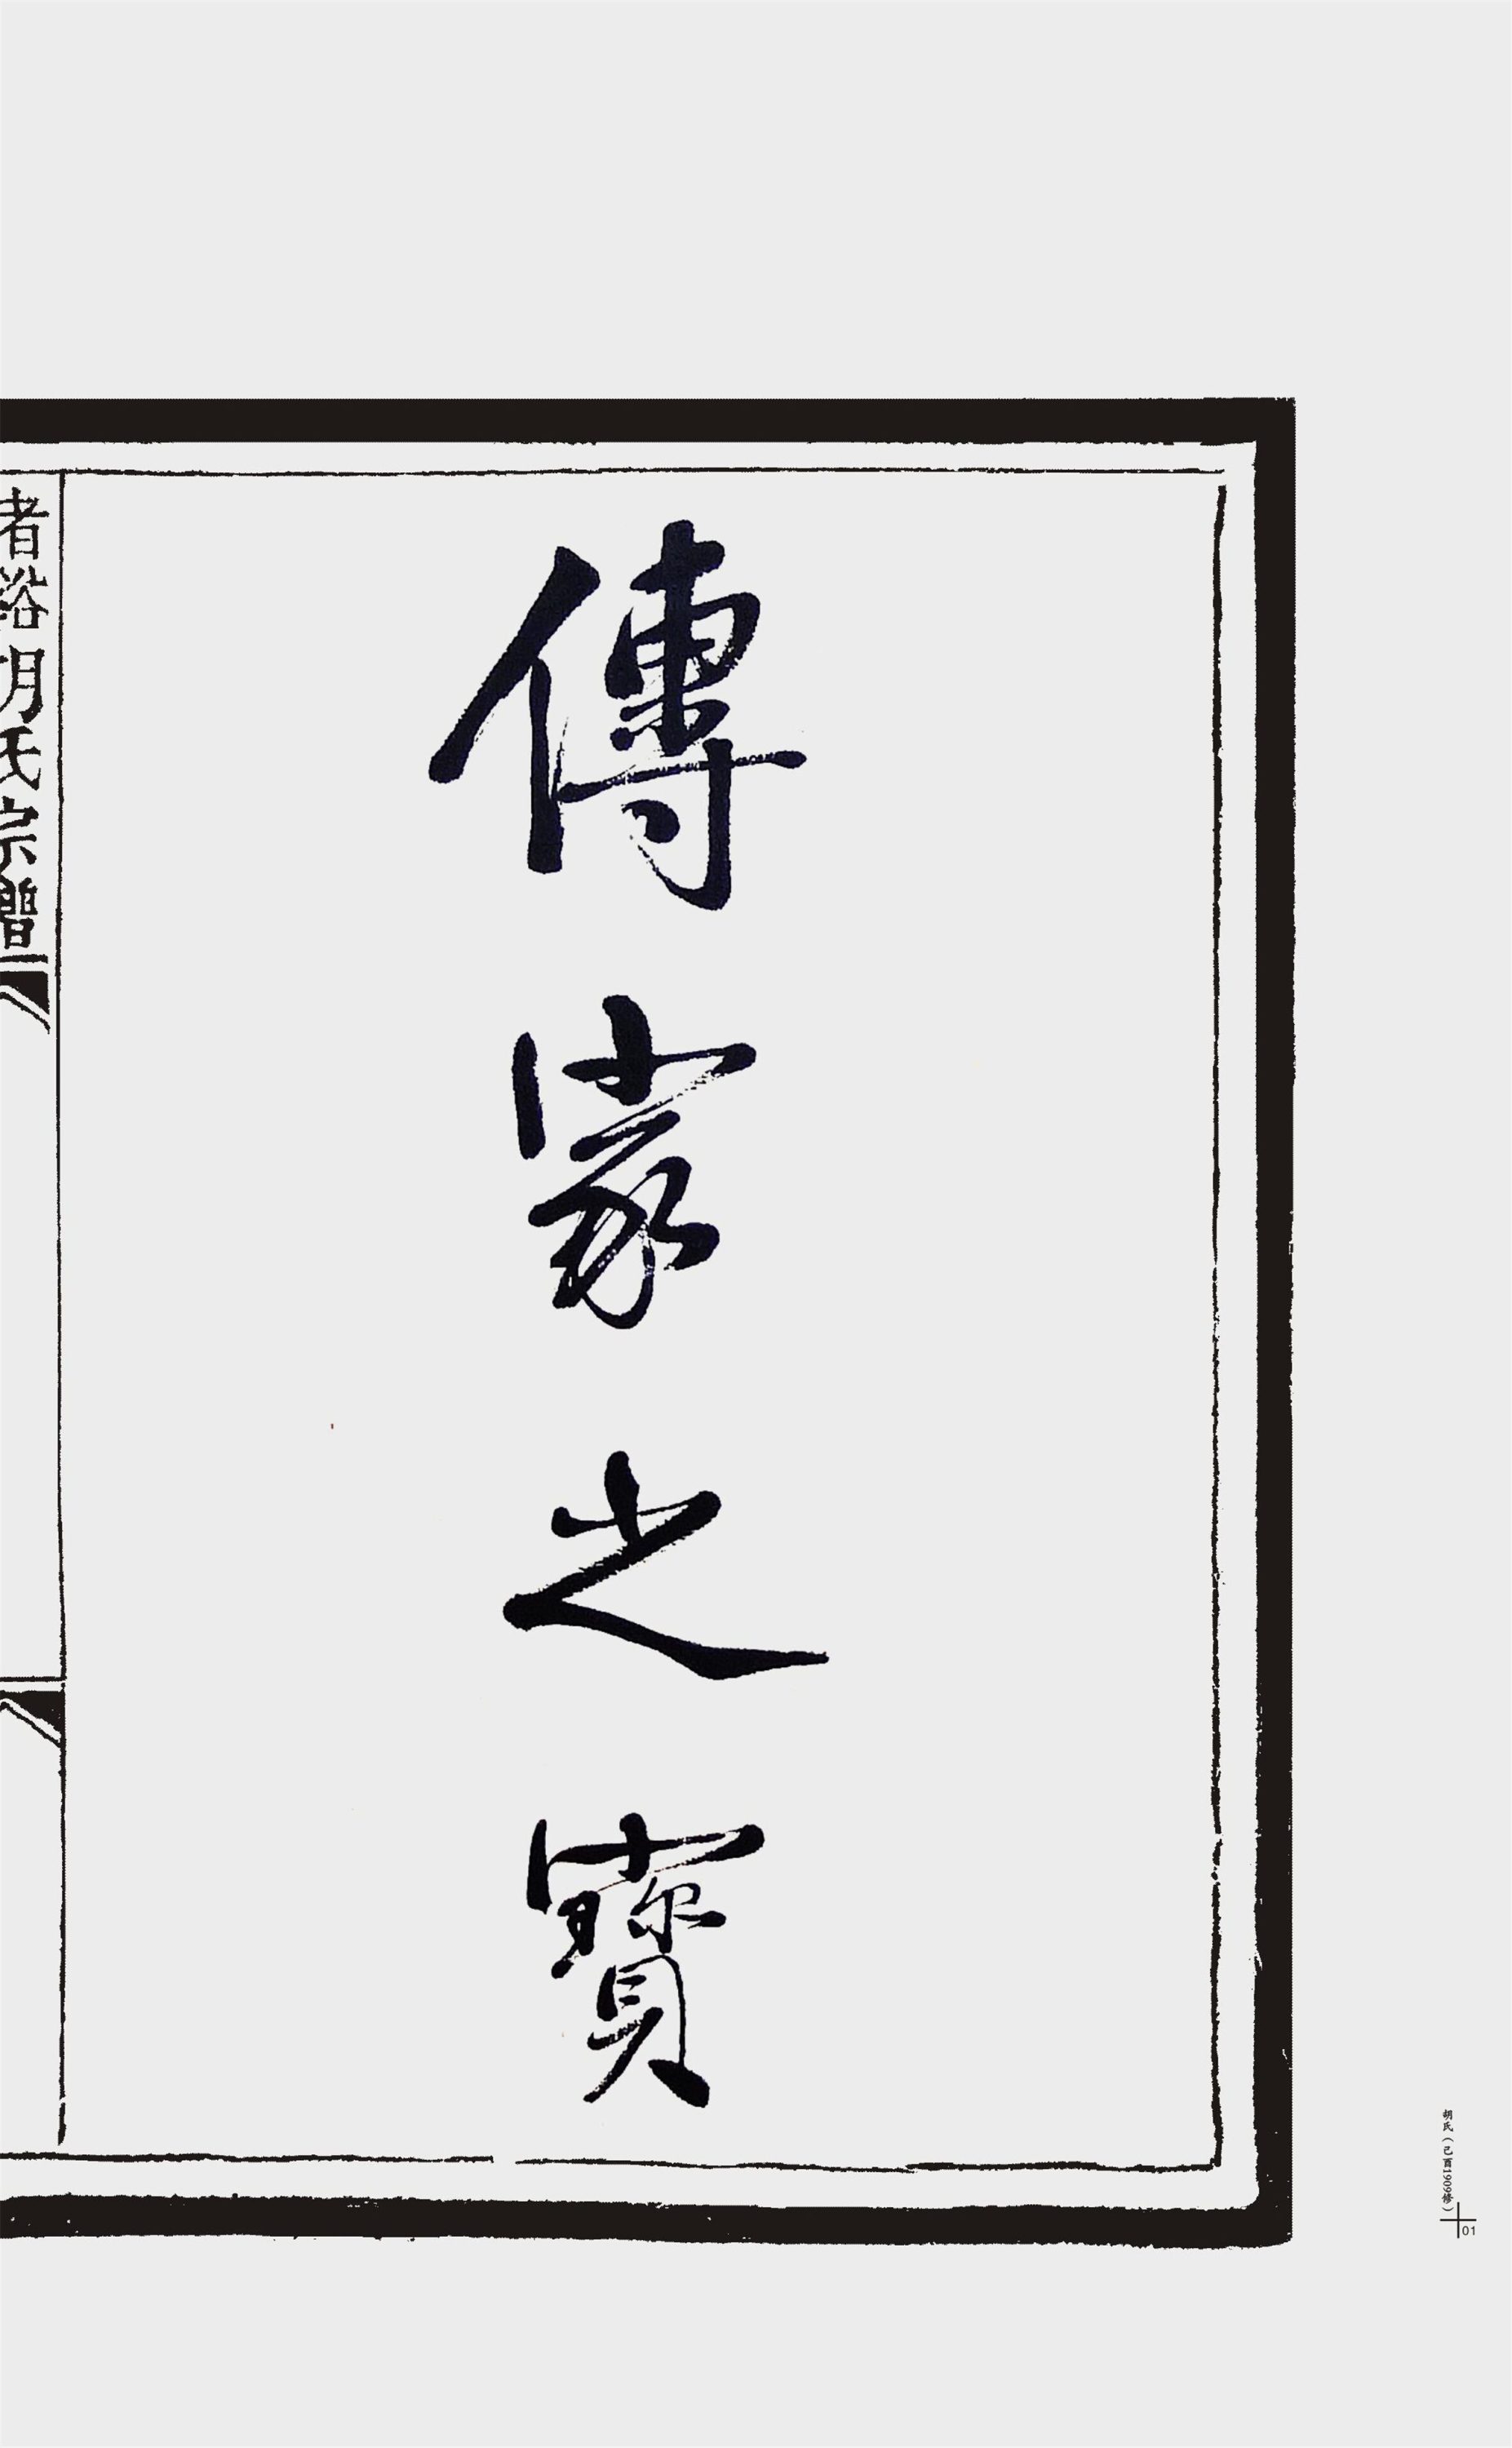 胡氏（己酉1909修）
01
傳家之寶
胡氏宗譜